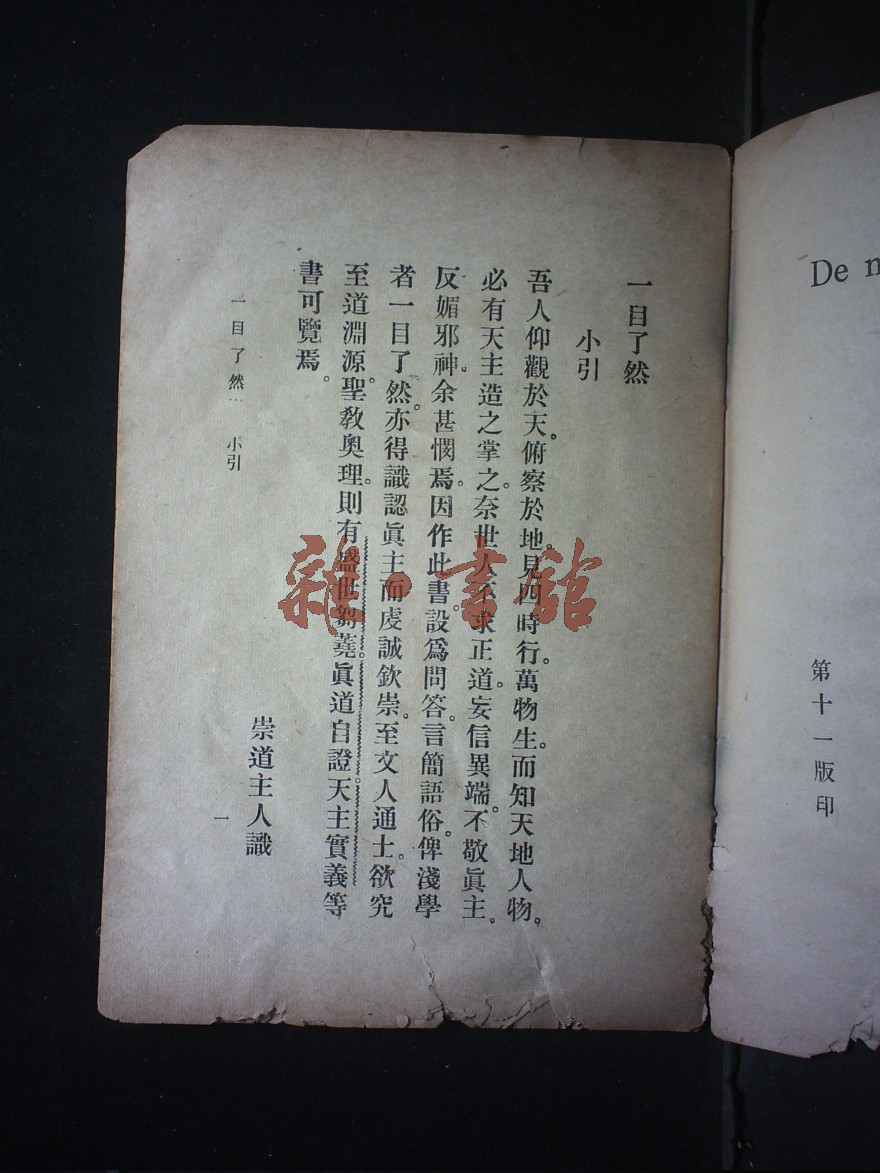 De
第十一版印
一目了然
小引
吾人仰觀於天。俯察於地。見四時行。萬物生。而知天地人物。
必有天主造之掌之。奈世人不求正道。妄信異端。不敬眞主。
反媚邪神。余甚憫焉。因作此書。設爲問答。言簡語俗。俾淺學
者一目了然。亦得識認眞主而虔誠欽崇。至文人通士。欲究
至道淵源。聖敎奧理。則有盛世芻蕘。眞道自證。天主實義等
書可覽焉。
崇道主人識
一目了然… 小引
一
雜·書館